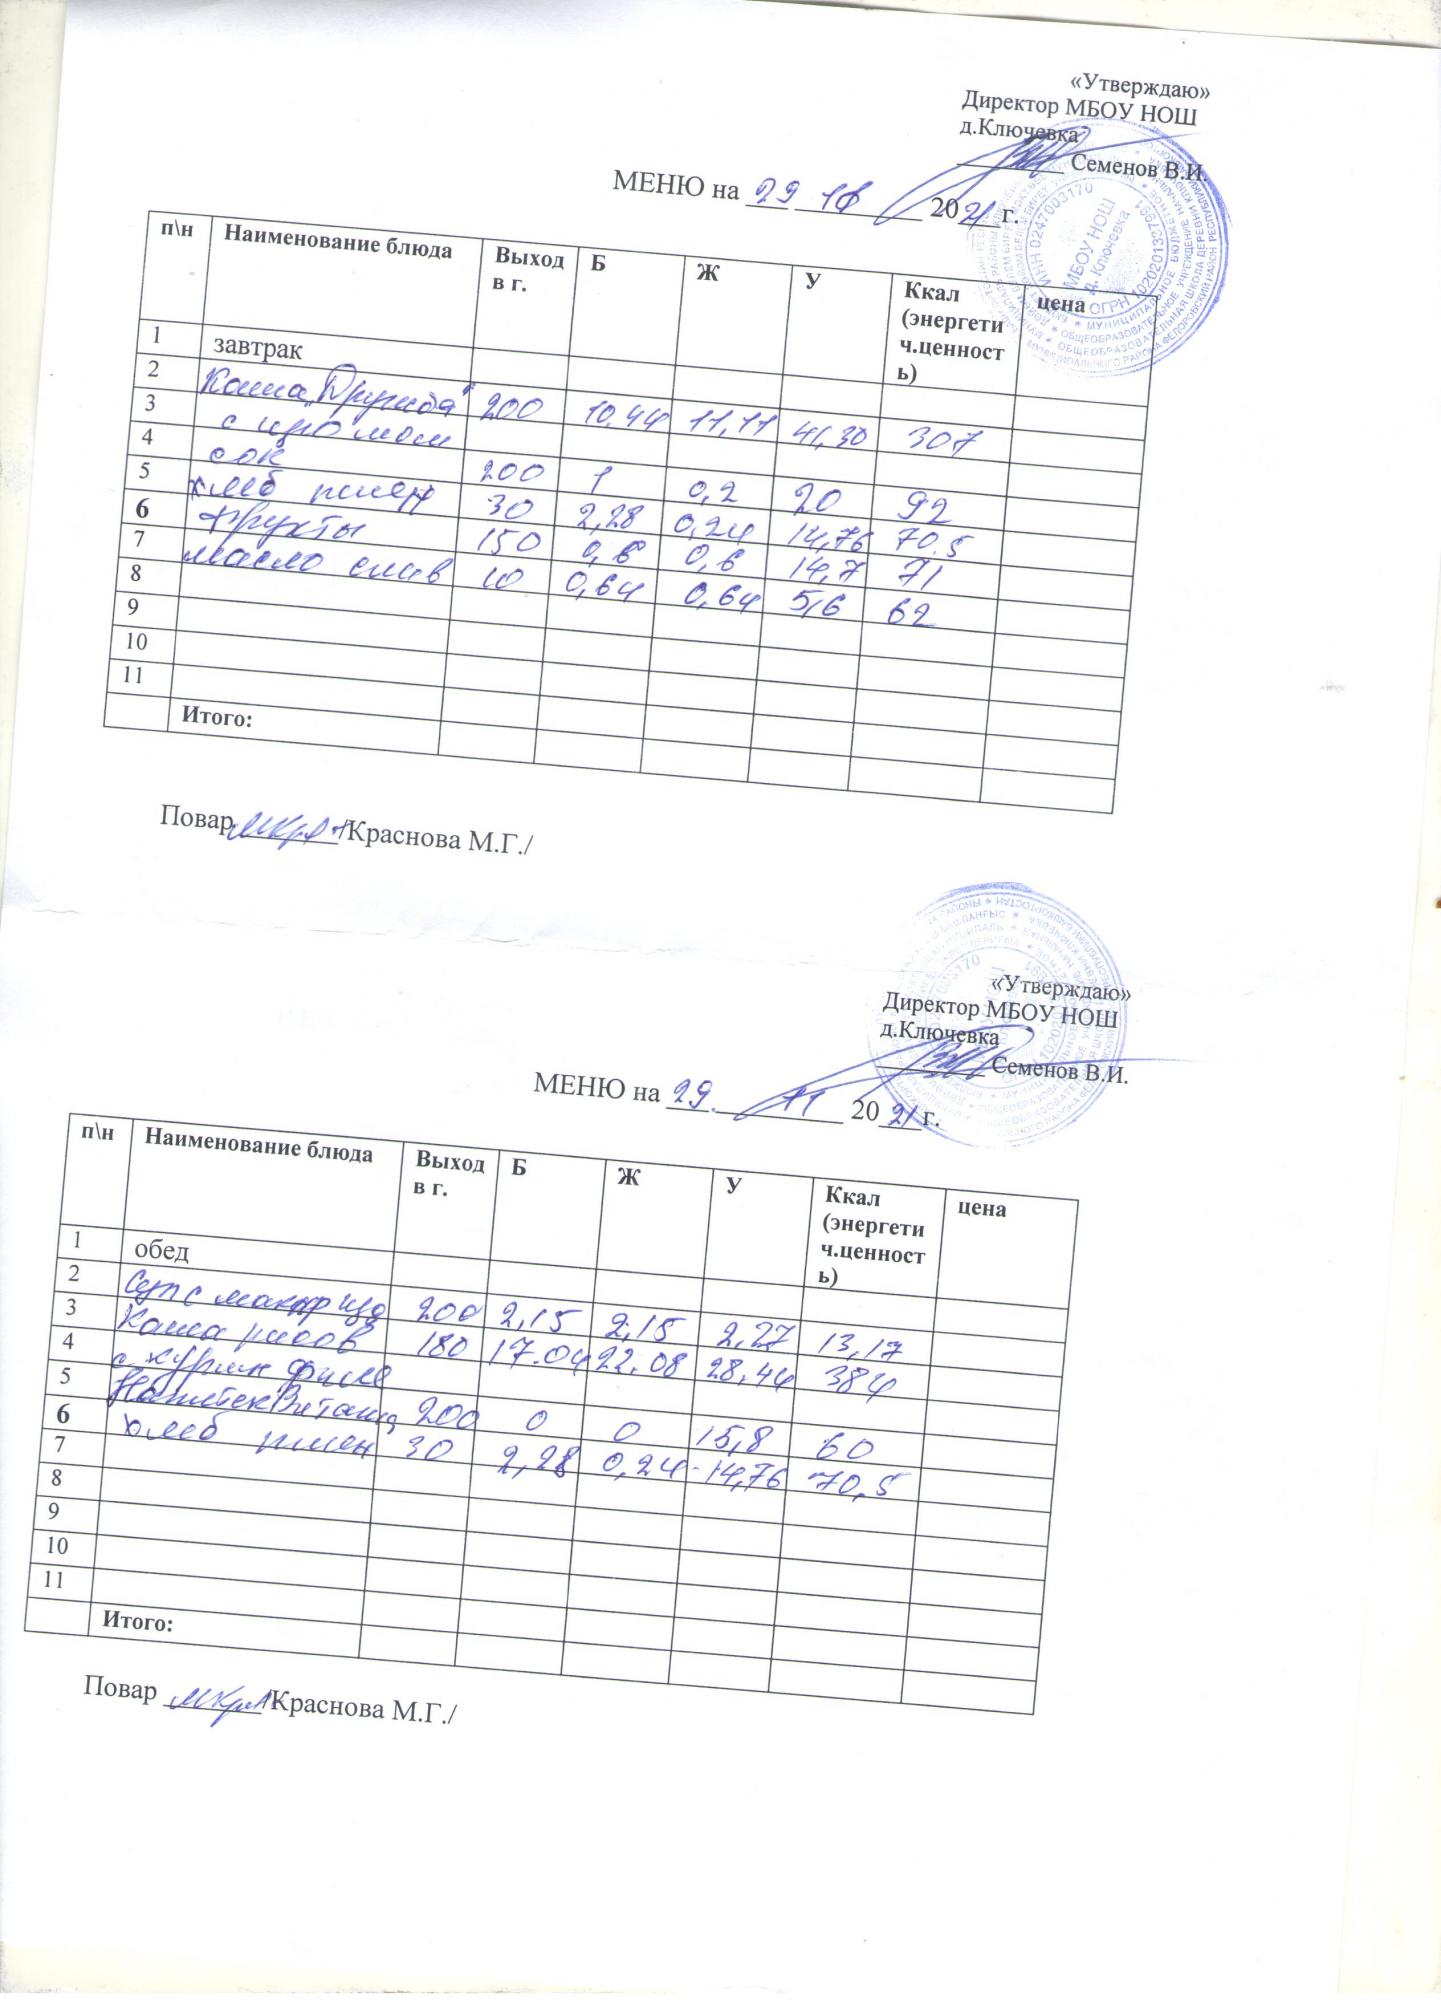 «Утверждаю»
Директор МБОУ НОШ
д.Ключевка
Семенов В.И.
МЕНЮ на 29 2021 г.
п\н Наименование блюда Выход в г. Б Ж У Ккал (энергетич.ценность) цена
1 завтрак
2 Каша "Дружба" 200 10.44 11,11 41,30 307
3 с цел мол
4 сок 200 1 0,2 20 92
5 хлеб пшен 30 2,28 0,24 14,76 70.5
6 фрукты 150 0,6 0,6 14,7 71
7 масло слив 10 0,64 0,64 5,6 62
8
9
10
11
Итого:
Повар /Краснова М.Г./
«Утверждаю»
Директор МБОУ НОШ
д.Ключевка
Семенов В.И.
МЕНЮ на 29. 11 2021 г.
п\н Наименование блюда Выход в г. Б Ж У Ккал (энергетич.ценность) цена
1 обед
2 Суп с макар изд 200 2,15 2,15 2,27 13,17
3 Каша рисов 180 17.04 22,08 28,44 384
4 с курин филе
5 Напиток Витошка 200 0 0 15,8 60
6 хлеб пшен 30 2,28 0,24 14,76 70,5
7
8
9
10
11
Итого:
Повар /Краснова М.Г./